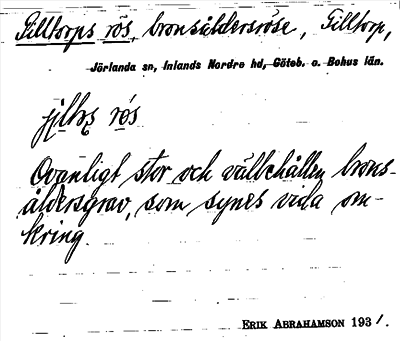 Gilltorps rös, bronsåldersröse, Gilltorp,
Jörlanda sn, Inlands Nordre hd, Göteb. o. Bohus län.
rós
Ovanligt stor och välbehållen brons-
åldersgrav, som synes vida om-
kring.
ERIK ABRAHAMSON 1931.